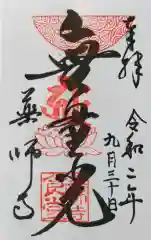 奉拝
令和二年
九月三十日
無量光
薬師寺